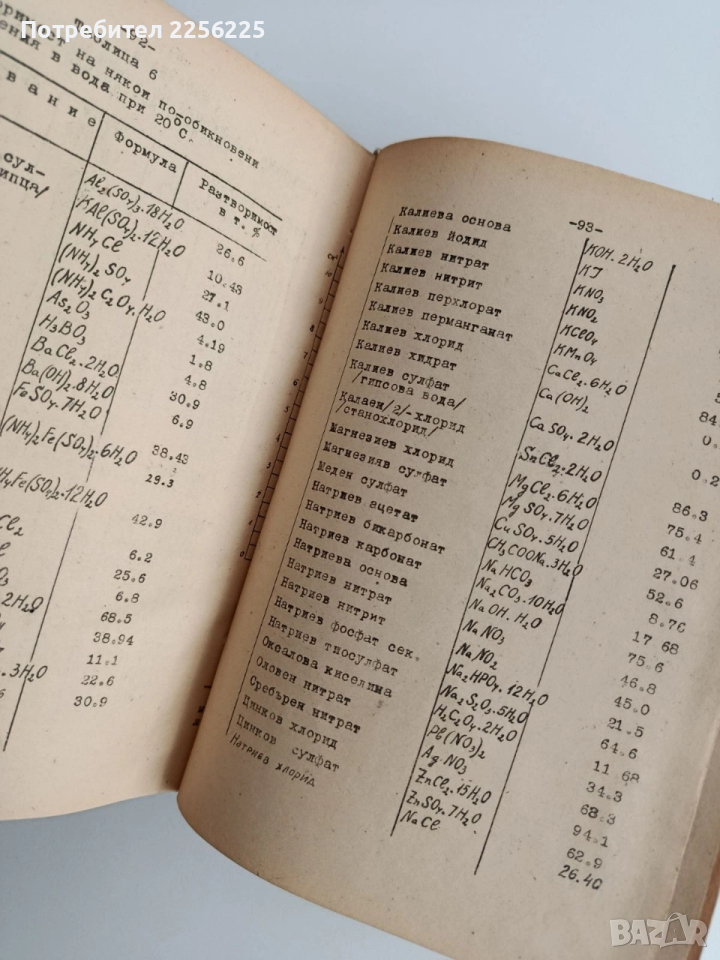 Потребител 2256225
92-
Таблица 6
ст на някои по-обикновени
ения в вода при 20°C.
вание
Формула
Разтворимост
в т. %
сул-
ипца/
Al2(SO4)3.18H2O 26.6
KAl(SO4)2.12H2O 10.43
NH4Cl 27.1
(NH4)2SO4 43.0
(NH4)2C2O4.H2O 4.19
As2O3 1.8
H3BO3 4.8
BaCl2.2H2O 30.9
Ba(OH)2.8H2O 6.9
FeSO4.7H2O 38.43
(NH4)2Fe(SO4)2.6H2O 29.3
H4Fe(SO4)2.12H2O 42.9
Cl2 6.2
25.6
6.8
2H2O 68.5
38.94
11.1
.3H2O 22.6
30.9
-93-
Калиева основа KOH.2H2O
Калиев йодид KJ
Калиев нитрат KNO3
Калиев нитрит KNO2
Калиев перхлорат KClO4
Калиев перманганат KMnO4
Калиев хлорид CaCl2.6H2O
Калиев хидрат Ca(OH)2
Калиев сулфат
/гипсова вода/ CaSO4.2H2O
Калаен/2/-хлорид
/станохлорид/ SnCl2.2H2O
Магнезиев хлорид MgCl2.6H2O
Магнезияв сулфат MgSO4.7H2O
Меден сулфат CuSO4.5H2O
Натриев ацетат CH3COONa.3H2O
Натриев бикарбонат NaHCO3
Натриев карбонат Na2CO3.10H2O
Натриева основа NaOH.H2O
Натриев нитрат NaNO3
Натриев нитрит NaNO2
Натриев фосфат сек. Na2HPO4.12H2O
Натриев тиосулфат Na2S2O3.5H2O
Оксалова киселина H2C2O4.2H2O
Оловен нитрат Pb(NO3)2
Сребърен нитрат AgNO3
Цинков хлорид ZnCl2.15H2O
Цинков сулфат ZnSO4.7H2O
Натриев хлорид NaCl
84
0.
0.2
86.3
75.4
61.4
27.06
52.6
8.70
17.68
75.6
46.8
45.0
21.5
64.6
11.68
34.3
68.3
94.1
62.9
26.40
BAZAR